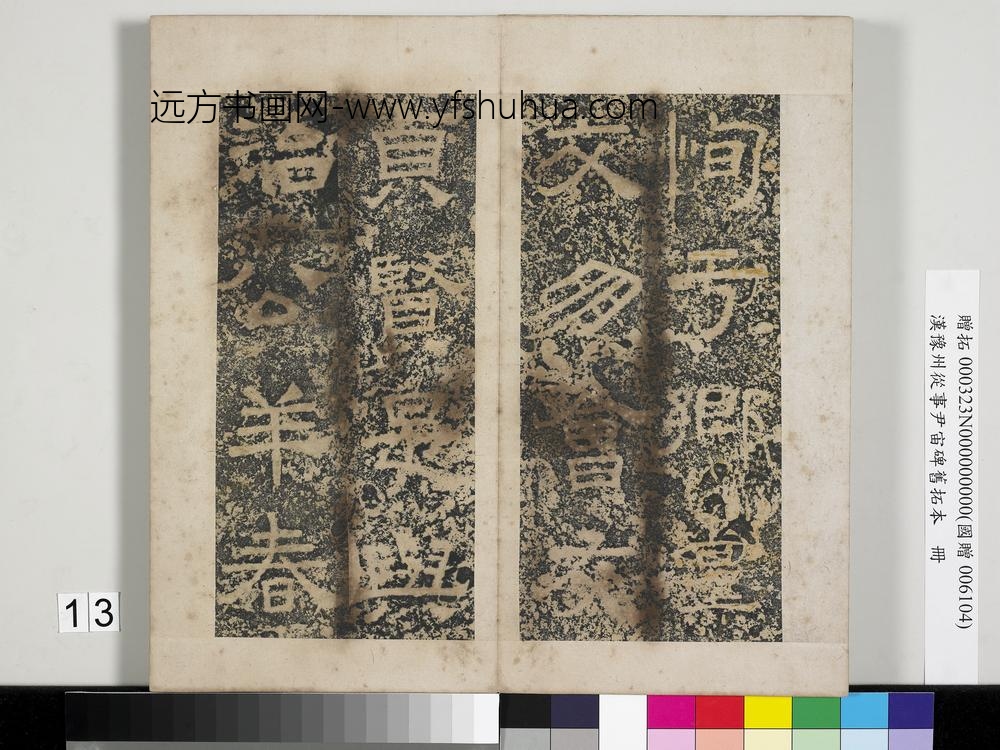 远方书画网-www.yfshuhua.com
恂于鄉黨
交朋會友
貞賢是與
治公羊春
贈拓 000323N000000000(國贈 006104)
漢豫州從事尹宙碑舊拓本 冊
13